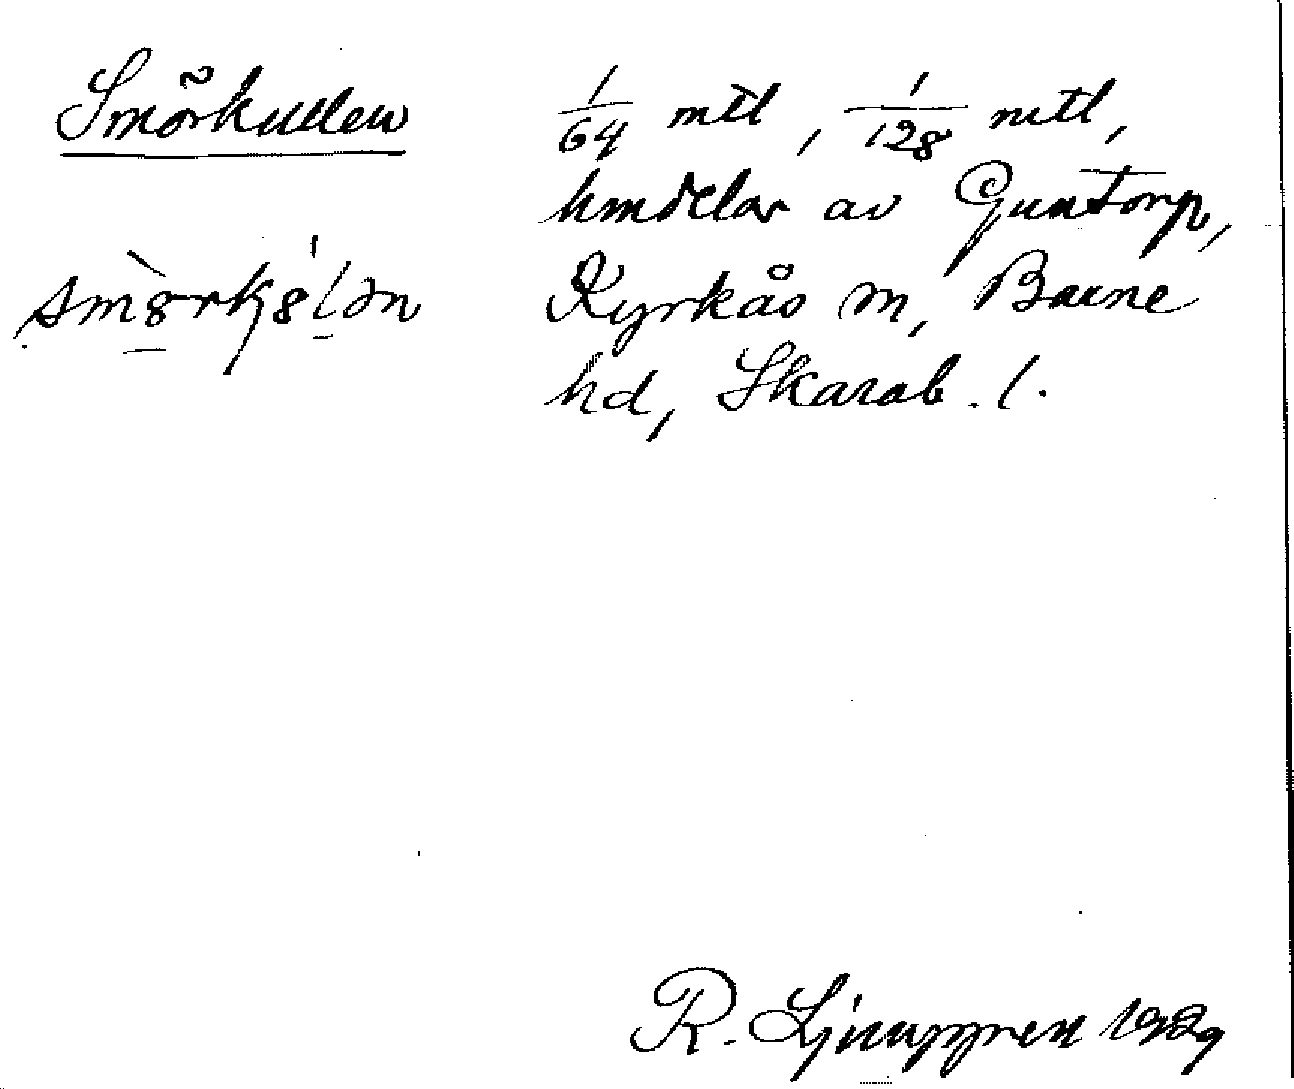 Smörkullen
smörkə8lən
1/64 mtl, 1/128 mtl,
hmdelar av Guntorp,
Kyrkås sn, Barne
hd, Skarab. l.
R. Ljunggren 1929